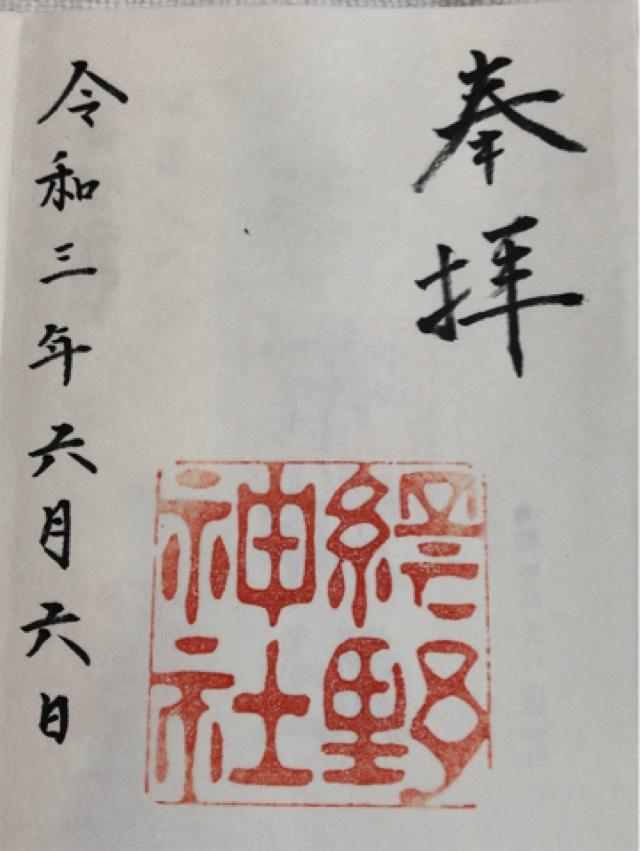 奉拝
終野
神社
令和三年六月六日